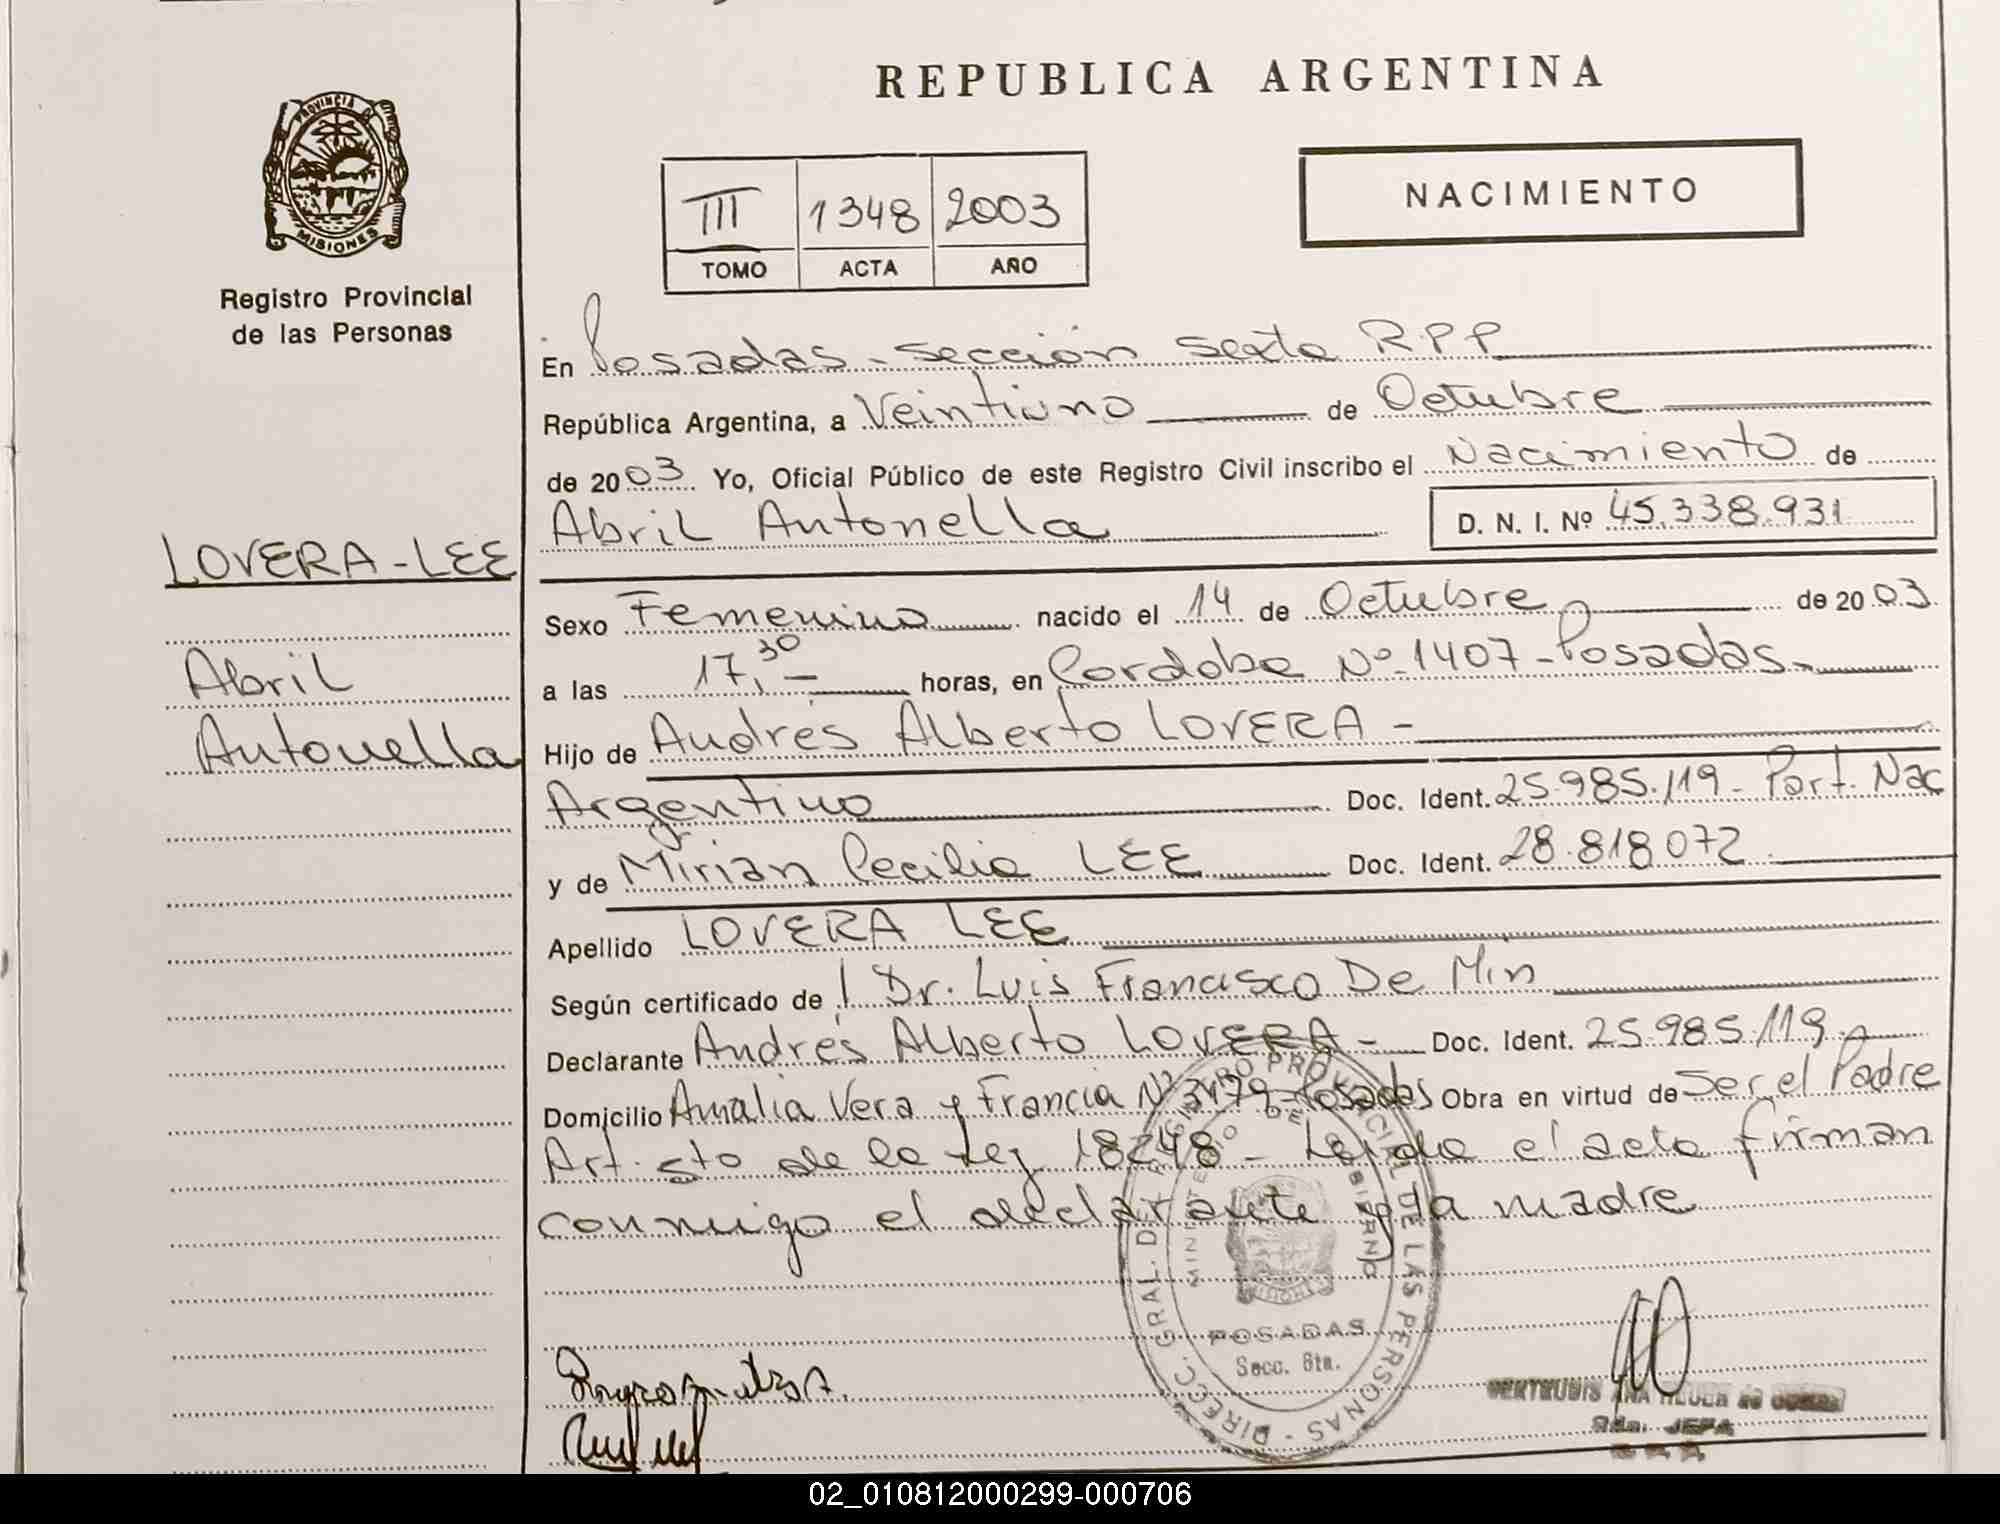 REPUBLICA ARGENTINA
PROVINCIA DE
MISIONES
Registro Provincial
de las Personas
III 1348 2003
TOMO ACTA AÑO
NACIMIENTO
En Posadas - sección sexta R.P.P
República Argentina, a Veintiuno de Octubre
de 2003 Yo, Oficial Público de este Registro Civil inscribo el Nacimiento de
Abril Antonella D. N. I. Nº 45.338.931
LOVERA - LEE
Abril
Antonella
Sexo Femenino nacido el 14 de Octubre de 2003.
a las 17,30 horas, en Cordoba Nº 1407 - Posadas -
Hijo de Andrés Alberto LOVERA -
Argentino Doc. Ident. 25.985.119 - Part. Nac
y de Mirian Cecilia LEE Doc. Ident. 28.818.072
Apellido LOVERA LEE
Según certificado de Dr. Luis Francisco De Min
Declarante Andrés Alberto LOVERA - Doc. Ident. 25.985.119 -
Domicilio Amalia Vera y Francia Nº 3479 - Posadas Obra en virtud de Ser el Padre
Art. 5to de la Ley 18248 - Leida el acta firman
conmigo el declarante y la madre
DIRECC. GRAL. DEL REGISTRO PROVINCIAL DE LAS PERSONAS
MINISTERIO DE GOBIERNO
POSADAS
Secc. 6ta.
JEFA
02_010812000299-000706